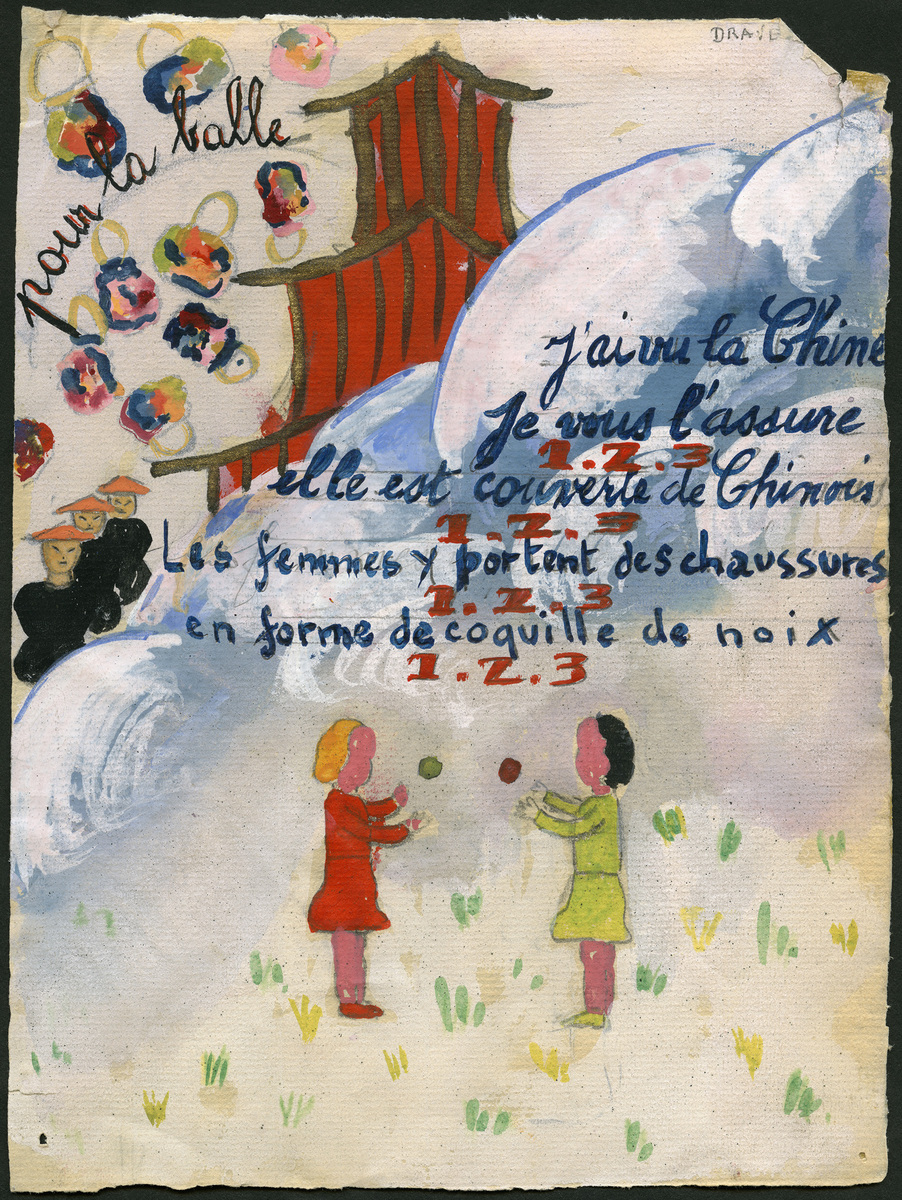 DRAVE
pour la balle
J'ai vu la Chine
Je vous l'assure
1.2.3
elle est couverte de Chinois
1.2.3
Les femmes y portent des chaussures
1.2.3
en forme de coquille de noix
1.2.3